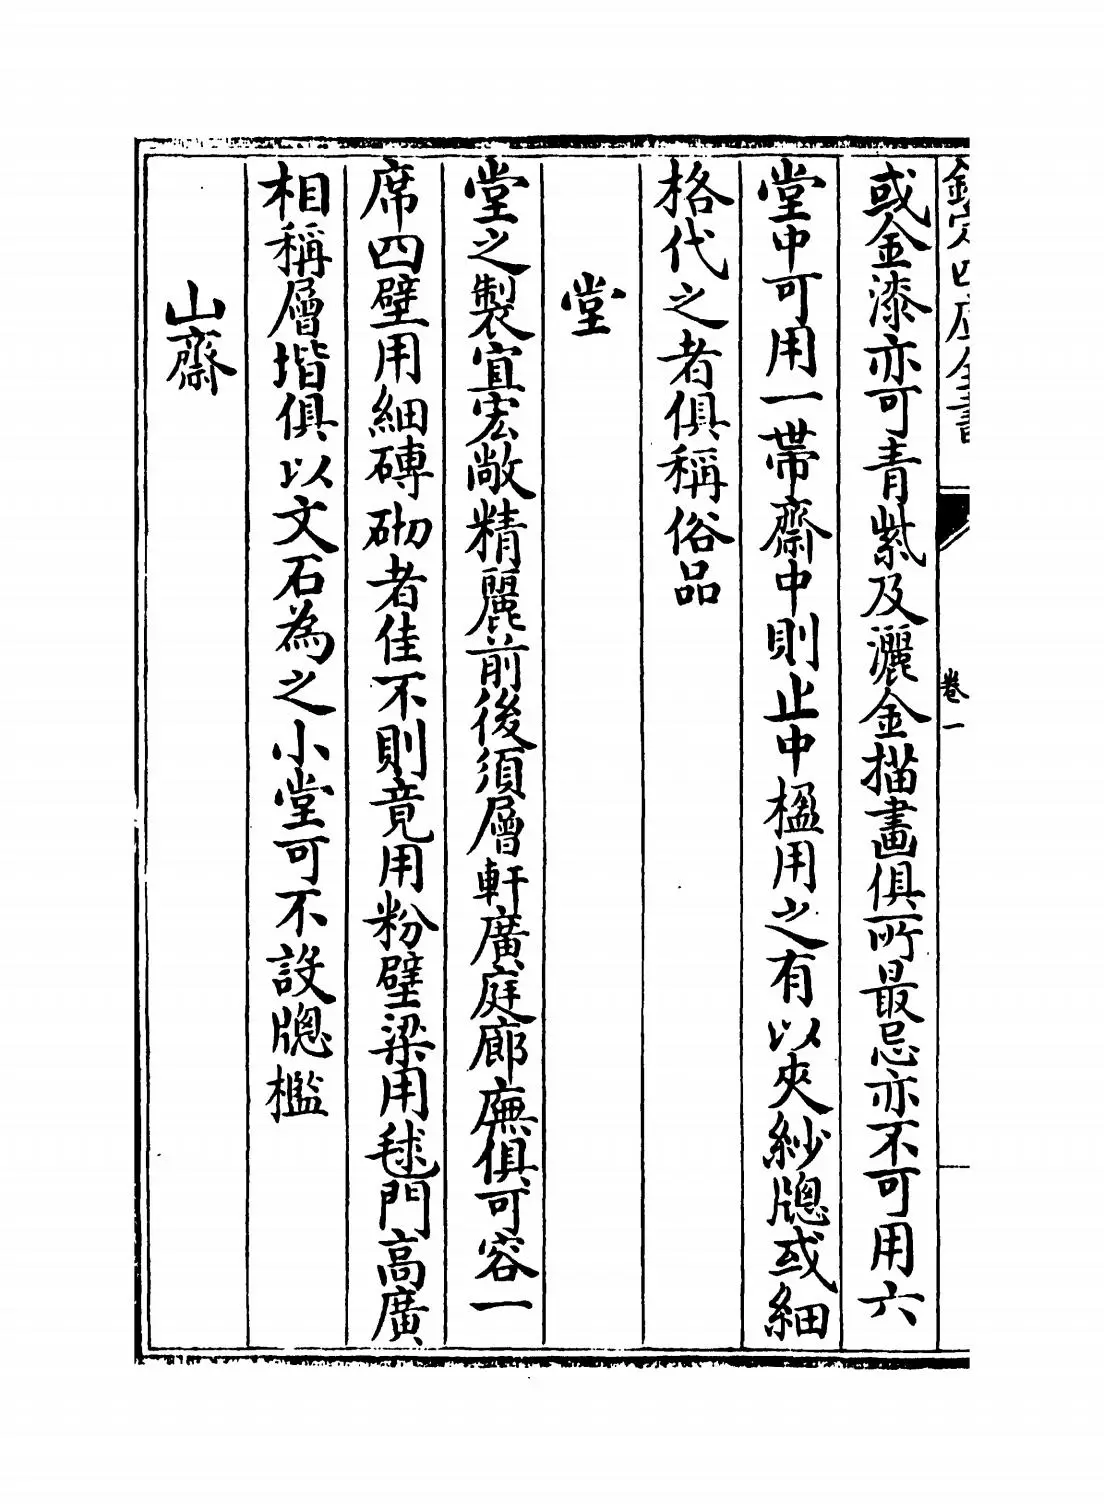 欽定四庫全書
卷一
或金漆亦可青紫及灑金描畫俱所最忌亦不可用六
堂中可用一帶齋中則止中楹用之有以夾紗牕或細
格代之者俱稱俗品
堂
堂之製宜宏敞精麗前後須層軒廣庭廊廡俱可容一
席四壁用細磚砌者佳不則竟用粉壁梁用毬門高廣
相稱層堦俱以文石為之小堂可不設牕檻
山齋